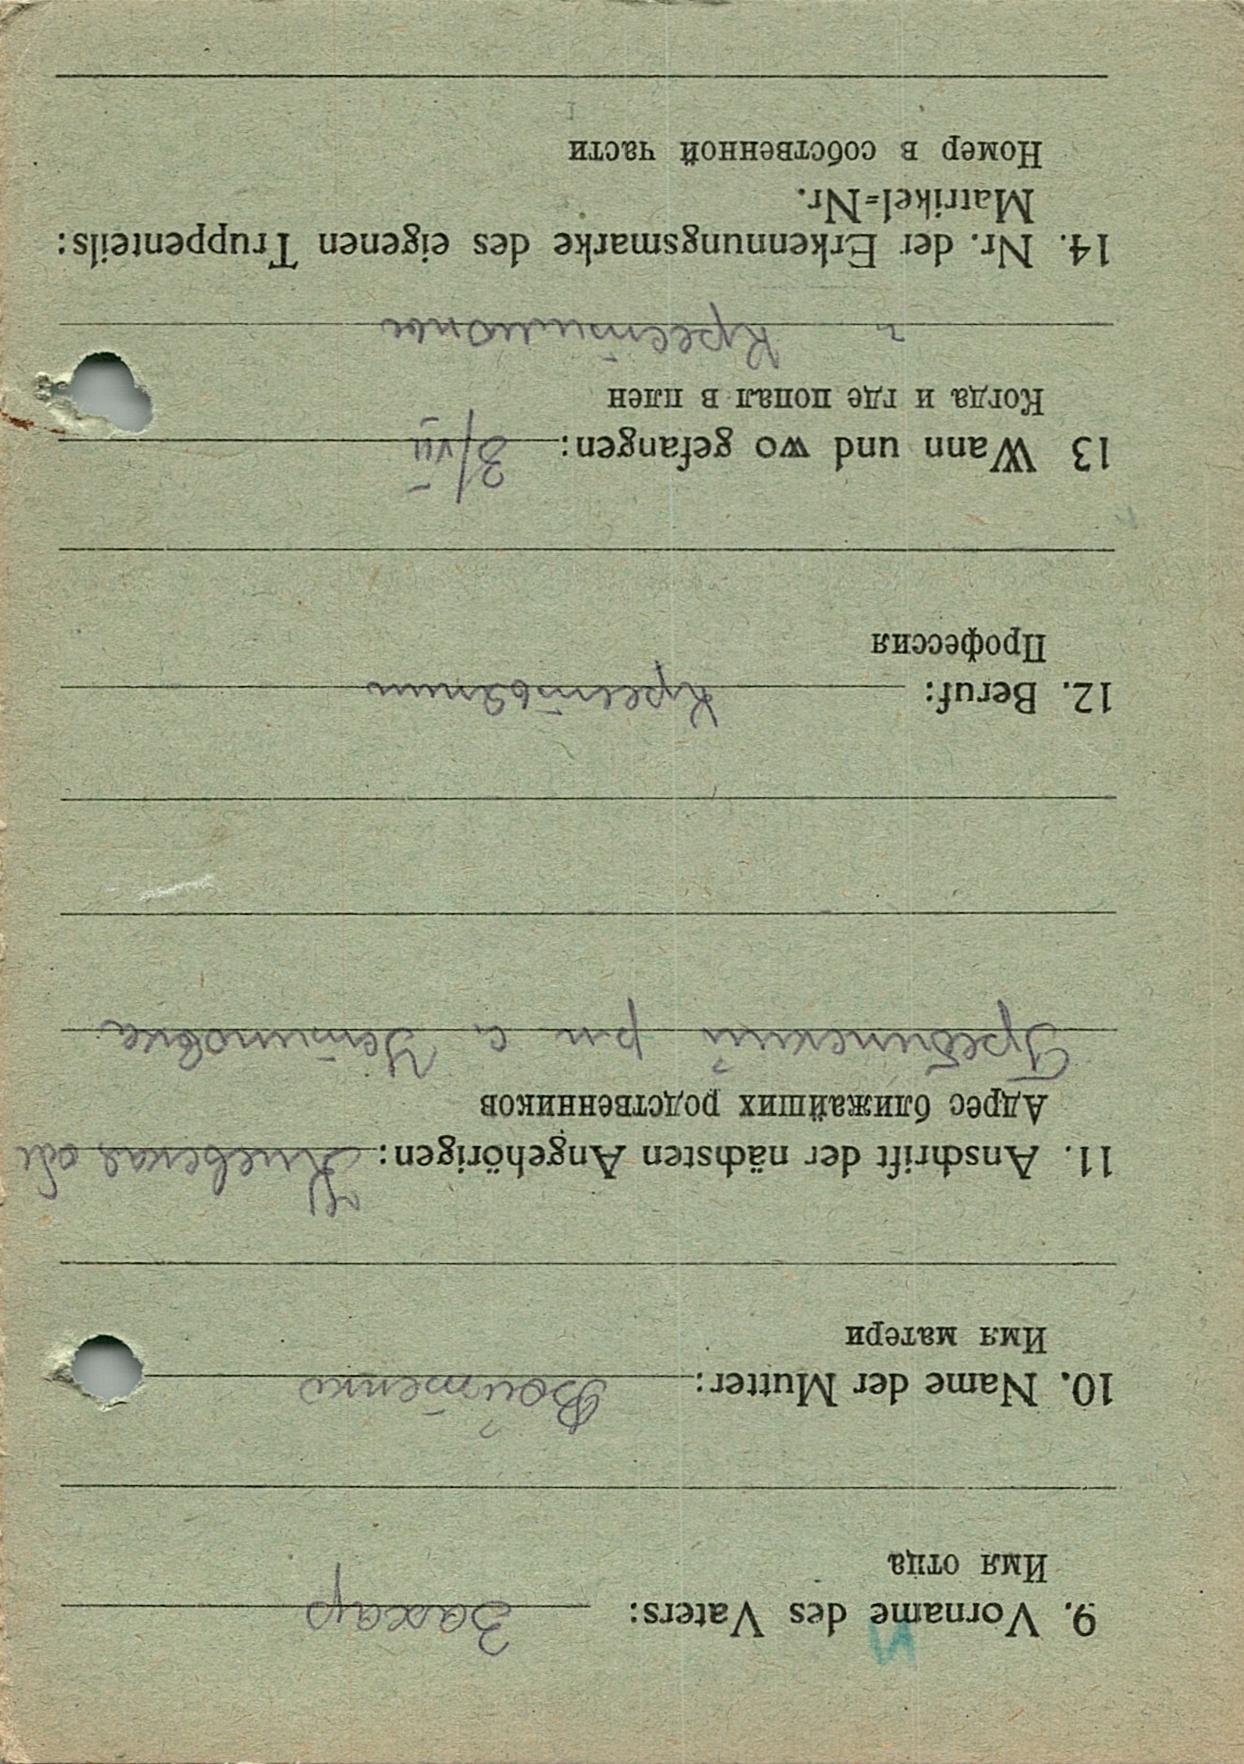 9. Vorname des Vaters: Захар
Имя отца
10. Name der Mutter: Войтенко
Имя матери
11. Anschrift der nächsten Angehörigen: Киевская обл
Адрес ближайших родственников
Гребинский рн с. Устимовка
12. Beruf: Крестьянин
Профессия
13 Wann und wo gefangen: 3/VII
Когда и где попал в плен
г
14. Nr. der Erkennungsmarke des eigenen Truppenteils:
Matrikel=Nr.
Номер в собственной части